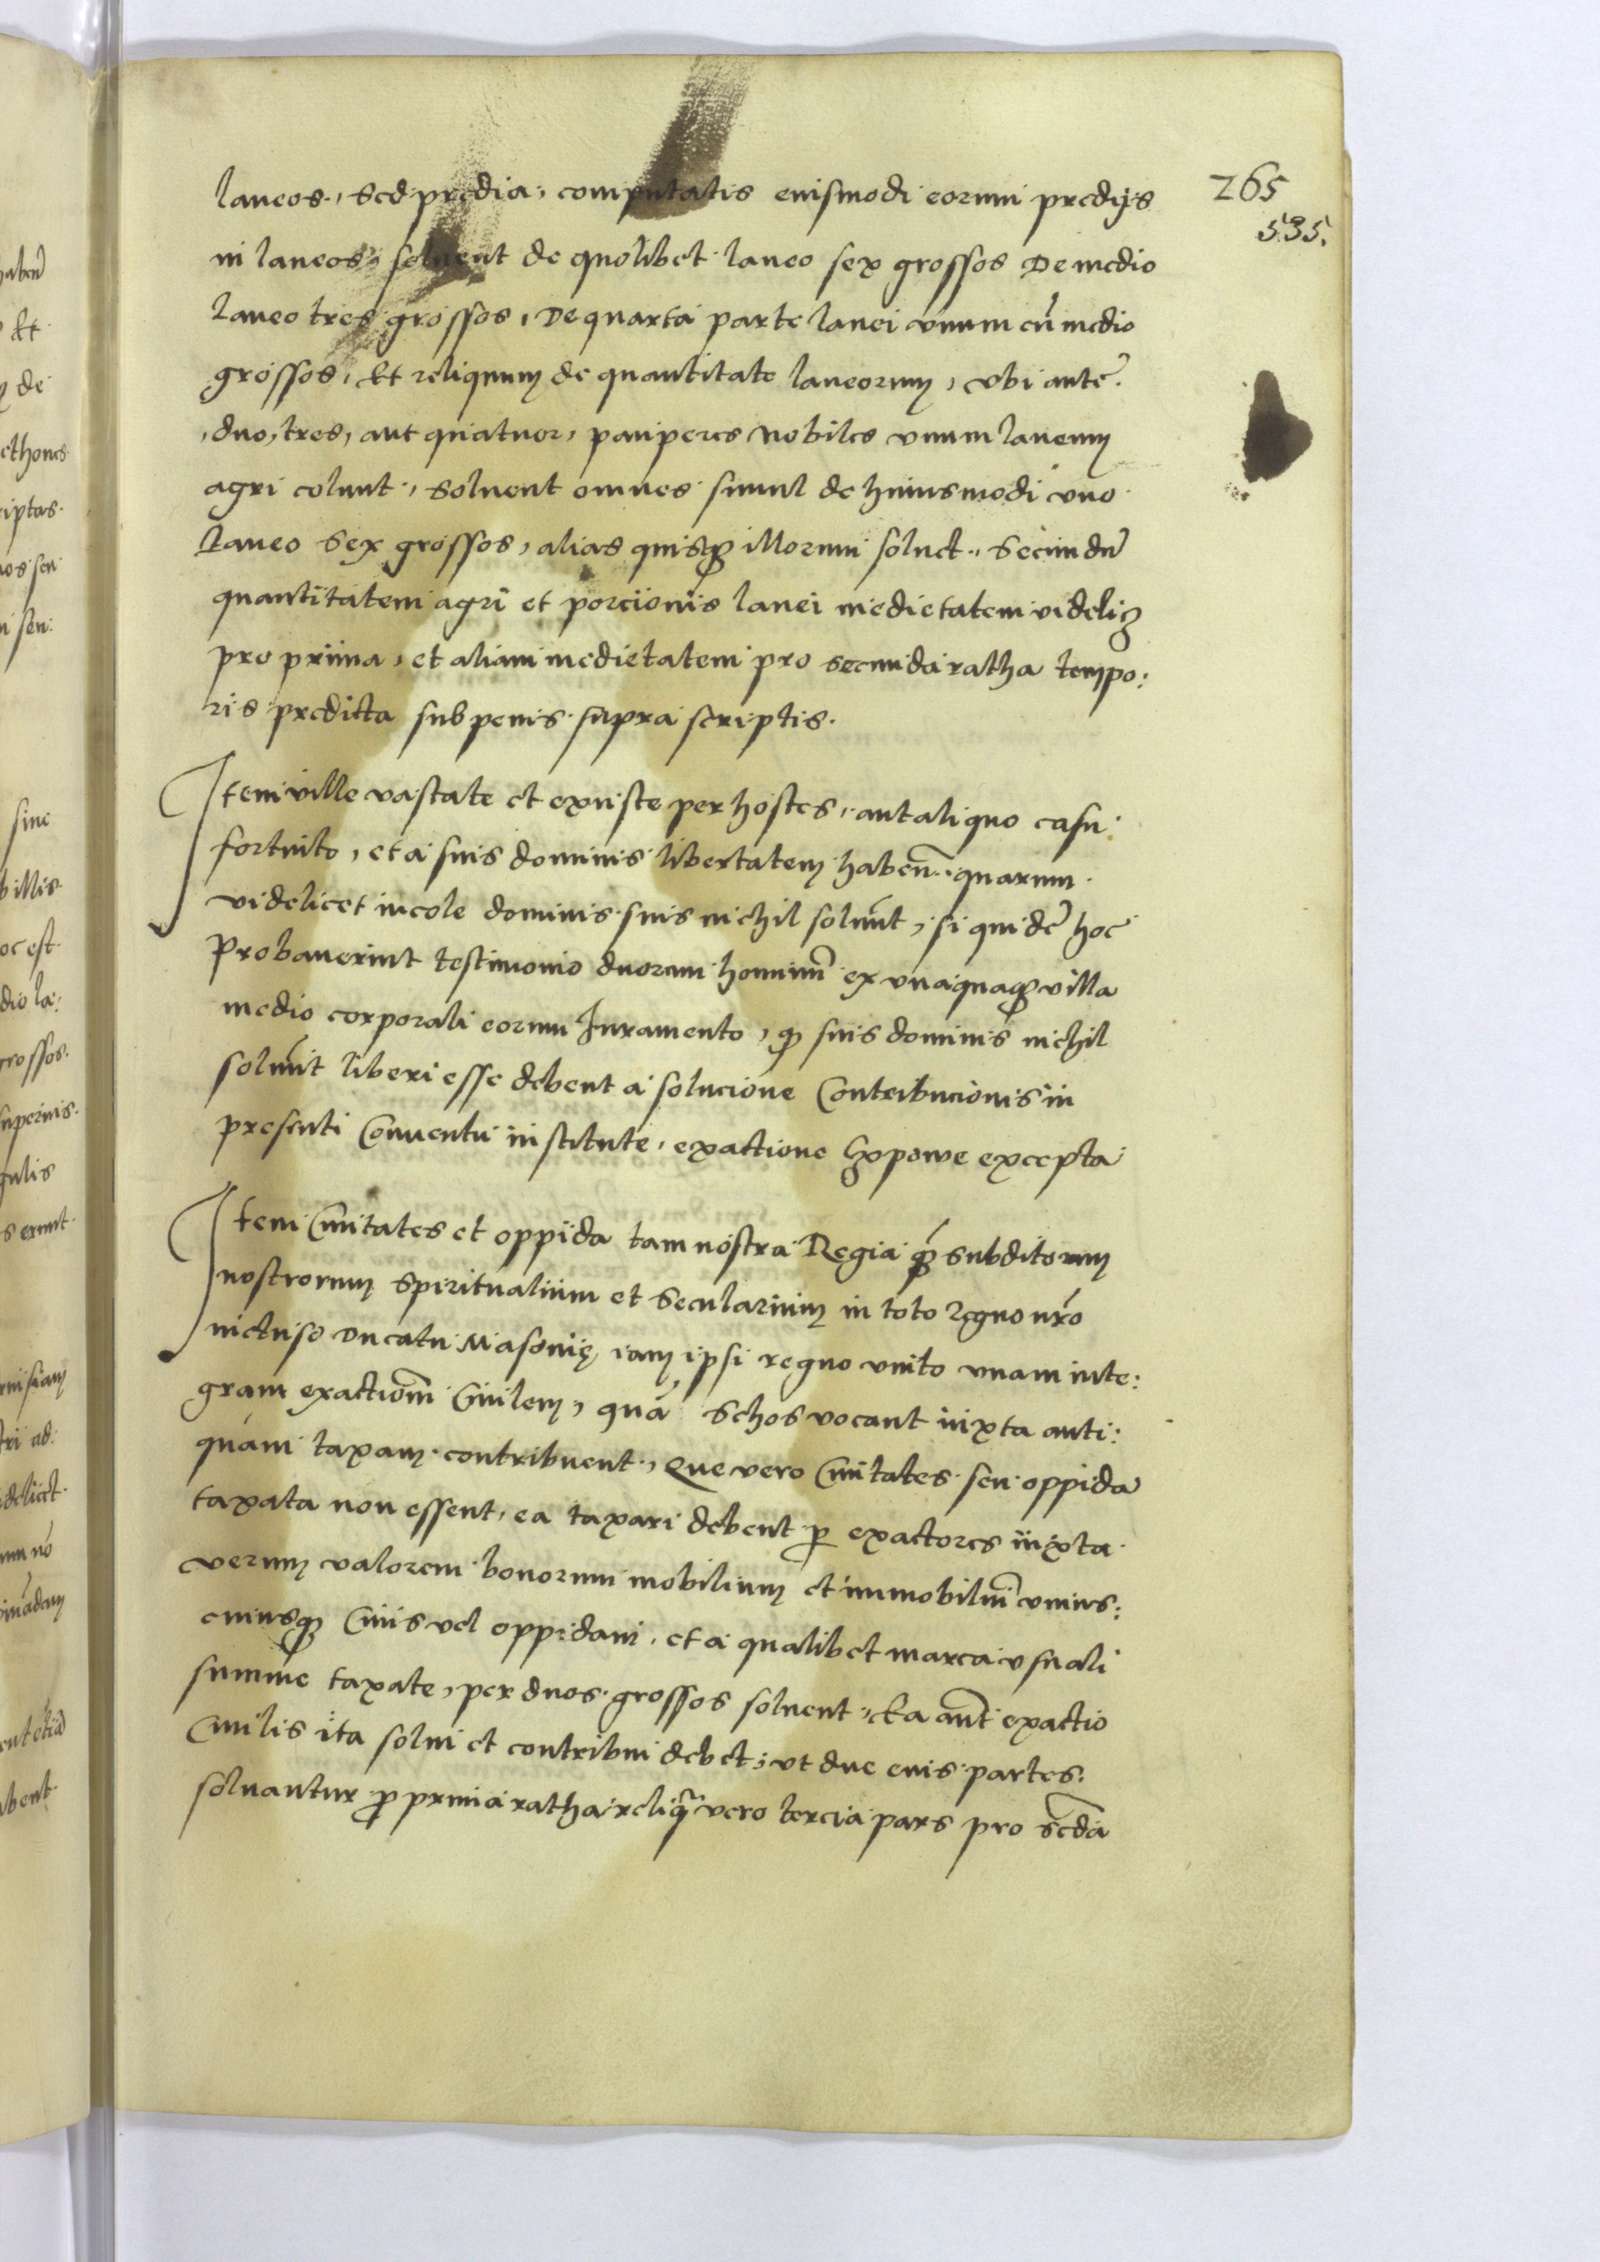 265
535.
laneos, Sed predia, computatis eiusmodi eorum predijs
in laneos, soluent de quolibet laneo sex grossos De medio
laneo tres grossos, De quarta parte lanei vnum cũ medio
grossos, Et reliquum de quantitate laneorum, vbi autẽ
duo, tres, aut quatuor, pauperes Nobiles vnum laneum
agri colunt, Soluent omnes simul de huiusmodi vno
laneo Sex grossos, alias quisqꝫ illorum soluet, Secundũ
quantitatem agri et porcionis lanei medietatem videlicꝫ
pro prima, et aliam medietatem pro secunda ratha tempo:
ris predicta sub penis supra scriptis.
Item ville vastate et exuste per hostes, aut aliquo casu
fortuito, et a suis dominis libertatem habeñ. quarum
videlicet incole dominis suis nichil soluũt, si quidẽ hoc
Probauerint testimonio duorum hominũ ex vnaquaqꝫ villa
medio corporali eorum Iuramento, ꝙ suis dominis nichil
soluũt liberi esse debent a solucione Contribucionis in
presenti Conuentu institute, exactione Czopowe excepta
Item Ciuitates et oppida tam nostra Regia ꝙ̃ subditorum
nostrorum Spiritualium et Secularium in toto Regno nr̃o
nictuso Ducatu Masouię iam ipsi regno vnito vnam inte:
gram exactionẽ Ciuilem, quã Schos vocant iuxta anti:
quam taxam contribuent, Que vero Ciuitates seu oppida
taxata non essent, ea taxari debent ꝑ exactores iuxta
verum valorem bonorum mobilium et immobiliũ vnius:
cuiusqꝫ Ciuis vel oppidani, et a qualibet marca vsuali
summe taxate, per duos grossos soluent, Ea aut̃ exactio
Ciuilis ita solui et contribui debet, vt due eius partes
soluantur ꝓ prima ratha reliqua vero tercia pars pro scd̃a